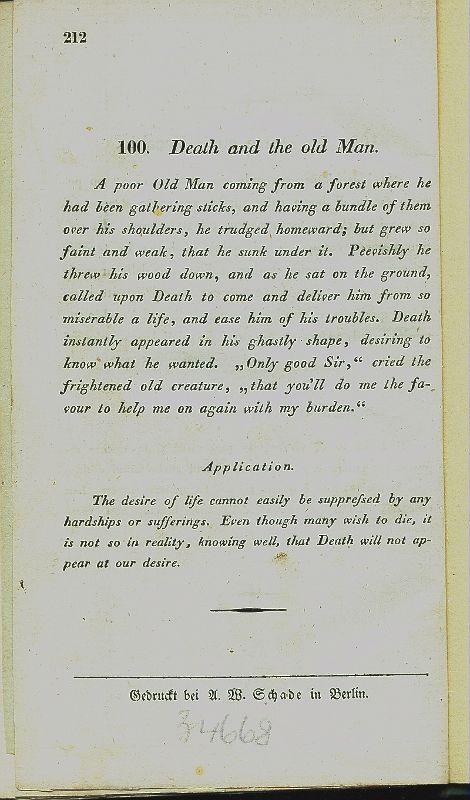 212
100. Death and the old Man.
A poor Old Man coming from a forest where he
had been gathering sticks, and having a bundle of them
over his shoulders, he trudged homeward; but grew so
faint and weak, that he sunk under it. Peevishly he
threw his wood down, and as he sat on the ground,
called upon Death to come and deliver him from so
miserable a life, and ease him of his troubles. Death
instantly appeared in his ghastly shape, desiring to
know what he wanted. „Only good Sir,“ cried the
frightened old creature, „that you'll do me the fa-
vour to help me on again with my burden.“
Application.
The desire of life cannot easily be suppreſsed by any
hardships or sufferings. Even though many wish to die, it
is not so in reality, knowing well, that Death will not ap-
pear at our desire.
Gedruckt bei A. W. Schade in Berlin.
34668